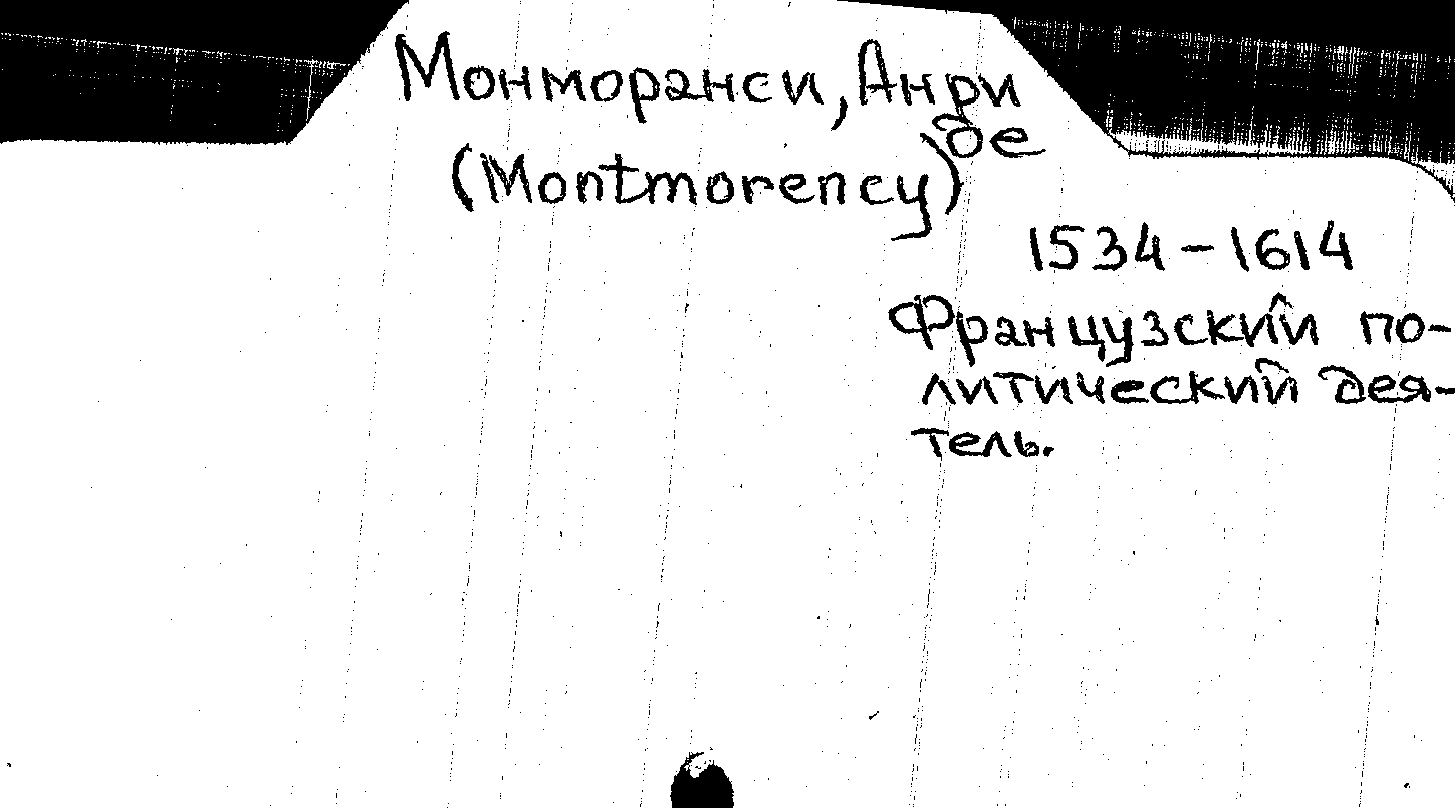 Монморанси, Анри
де
(Montmorency)
1534-1614
Французский по-
литический дея-
тель.